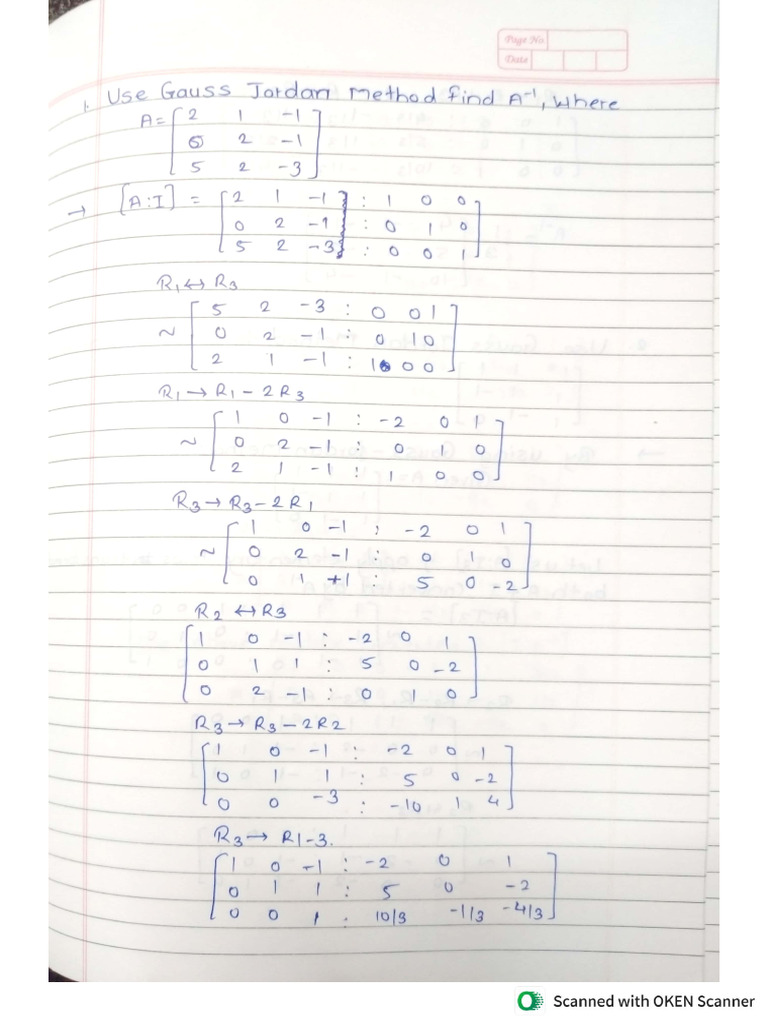 Page No.
Date
1. Use Gauss Jordan method find A⁻¹, where
A = [ 2 1 -1
0 2 -1
5 2 -3 ]
→ [A:I] = [ 2 1 -1 : 1 0 0
0 2 -1 : 0 1 0
5 2 -3 : 0 0 1 ]
R₁ ↔ R₃
~ [ 5 2 -3 : 0 0 1
0 2 -1 : 0 1 0
2 1 -1 : 1 0 0 ]
R₁ → R₁ - 2R₃
~ [ 1 0 -1 : -2 0 1
0 2 -1 : 0 1 0
2 1 -1 : 1 0 0 ]
R₃ → R₃ - 2R₁
~ [ 1 0 -1 : -2 0 1
0 2 -1 : 0 1 0
0 1 +1 : 5 0 -2 ]
R₂ ↔ R₃
[ 1 0 -1 : -2 0 1
0 1 1 : 5 0 -2
0 2 -1 : 0 1 0 ]
R₃ → R₃ - 2R₂
[ 1 0 -1 : -2 0 1
0 1 1 : 5 0 -2
0 0 -3 : -10 1 4 ]
R₃ → R1-3.
[ 1 0 -1 : -2 0 1
0 1 1 : 5 0 -2
0 0 1 : 10/3 -1/3 -4/3 ]
Scanned with OKEN Scanner